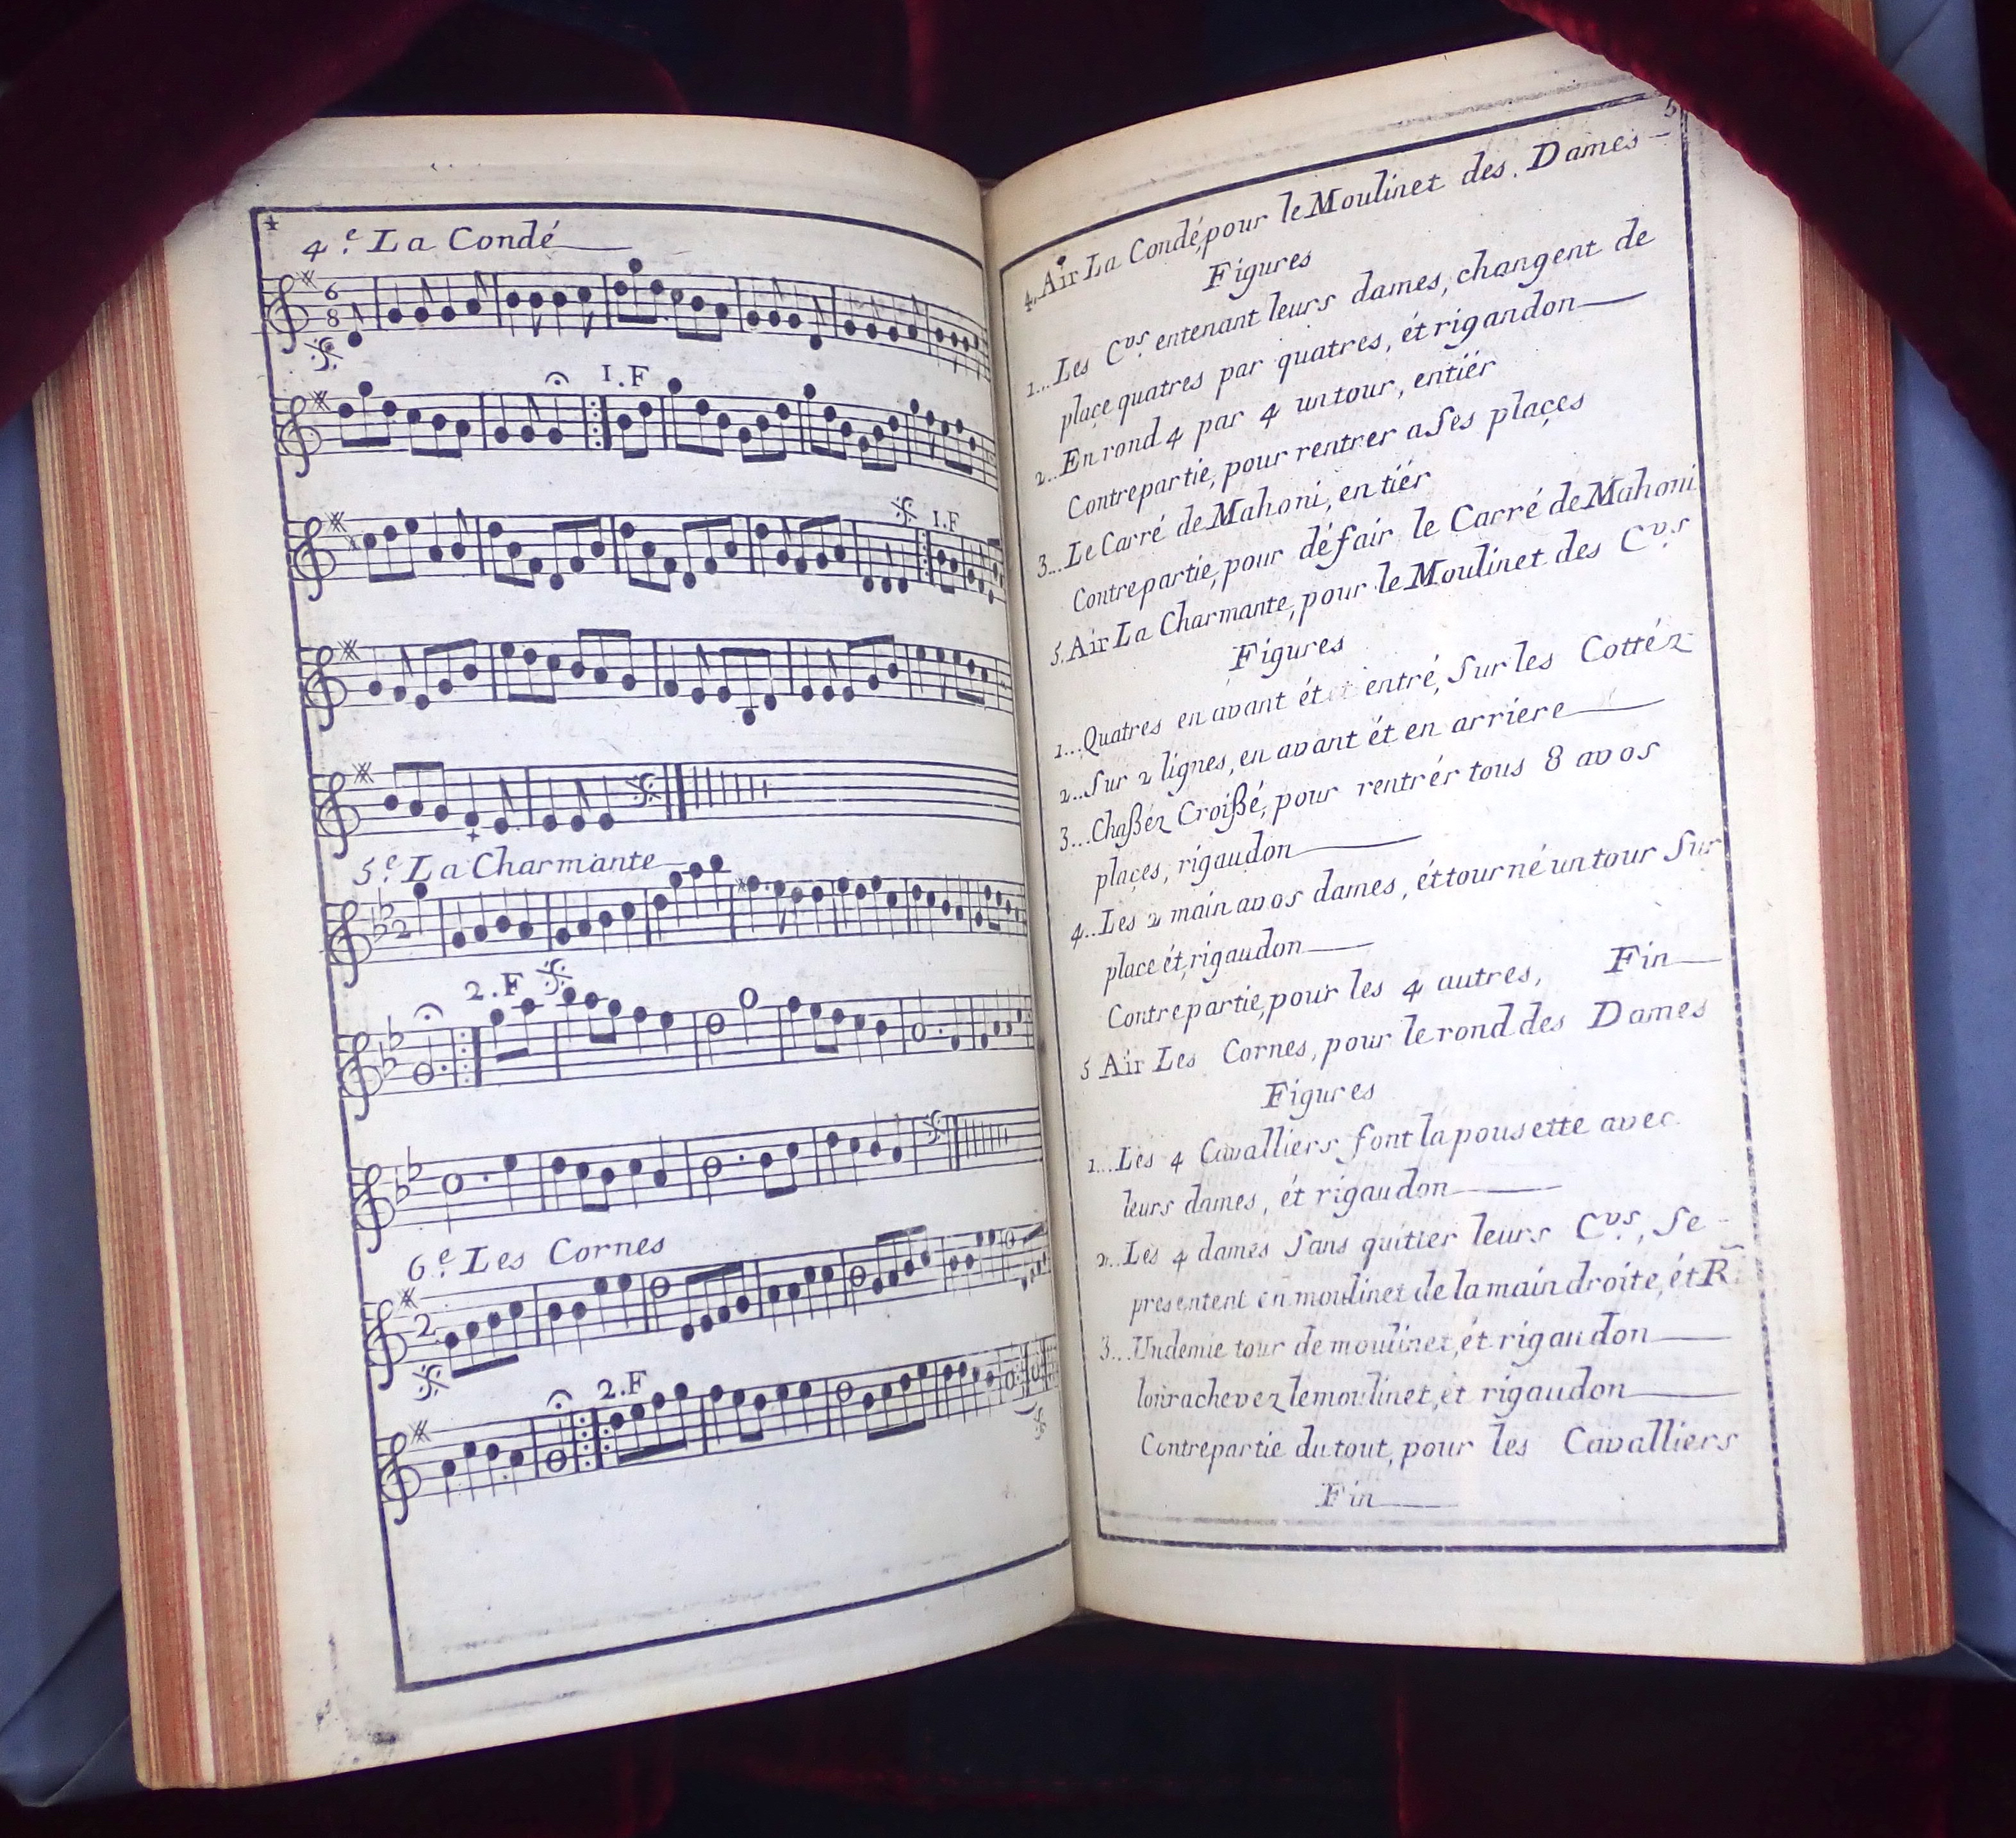 4
4.e La Condé
6
8
1.F
1.F
5.e La Charmante
2
2.F
6.e Les Cornes
2
2.F
5
4. Air La Condé, pour le Moulinet des. Dames
Figures
1... Les C.vs entenant leurs dames, changent de
plaçe quatres par quatres, ét rigandon
2... En rond 4 par 4 un tour, entiér
Contrepartie, pour rentrer a Ses plaçes
3... Le Carré de Mahoni, entiér
Contrepartie, pour défair le Carré de Mahoni
5. Air La Charmante, pour le Moulinet des C.vs
Figures
1... Quatres en avant ét entré, Sur les Cottéz
2... Sur 2 lignes, en avant ét en arriere
3... Chaßéz Croißé, pour rentrér tous 8 avos
plaçes, rigaudon
4... Les 2 main avos dames, ét tourné un tour Sur
place ét, rigaudon
Contrepartie, pour les 4 autres, Fin
5 Air Les Cornes, pour le rond des Dames
Figures
1... Les 4 Cavalliers font la pousette avec
leurs dames, ét rigaudon
2... Les 4 dames Sans quitter leurs C.vs, Se
presentent en moulinet de la main droite, ét R
3... Un demie tour de moulinet, ét rigaudon
lon rachevez le moulinet, ét rigaudon
Contrepartie du tout, pour les Cavalliers
Fin